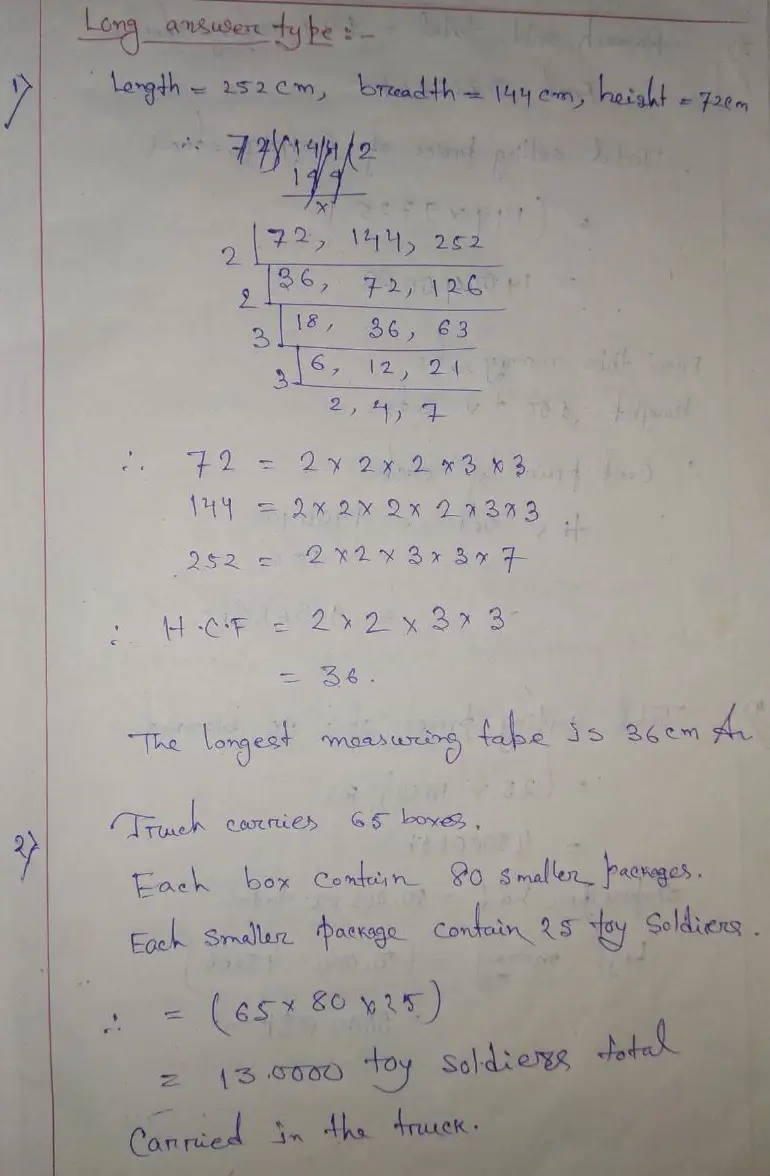 Long answer type :-
1) Length = 252 cm, breadth = 144 cm, height = 72cm
∴ 72)144(2
144
x
2 | 72, 144, 252
2 | 36, 72, 126
3 | 18, 36, 63
3 | 6, 12, 21
2, 4, 7
∴ 72 = 2 x 2 x 2 x 3 x 3
144 = 2 x 2 x 2 x 2 x 3 x 3
252 = 2 x 2 x 3 x 3 x 7
∴ H.C.F = 2 x 2 x 3 x 3
= 36.
The longest measuring tape is 36cm
2) Truck carries 65 boxes.
Each box contain 80 smaller packages.
Each smaller package contain 25 toy soldiers.
∴ = (65 x 80 x 25)
= 13.0000 toy soldiers total
Carried in the truck.